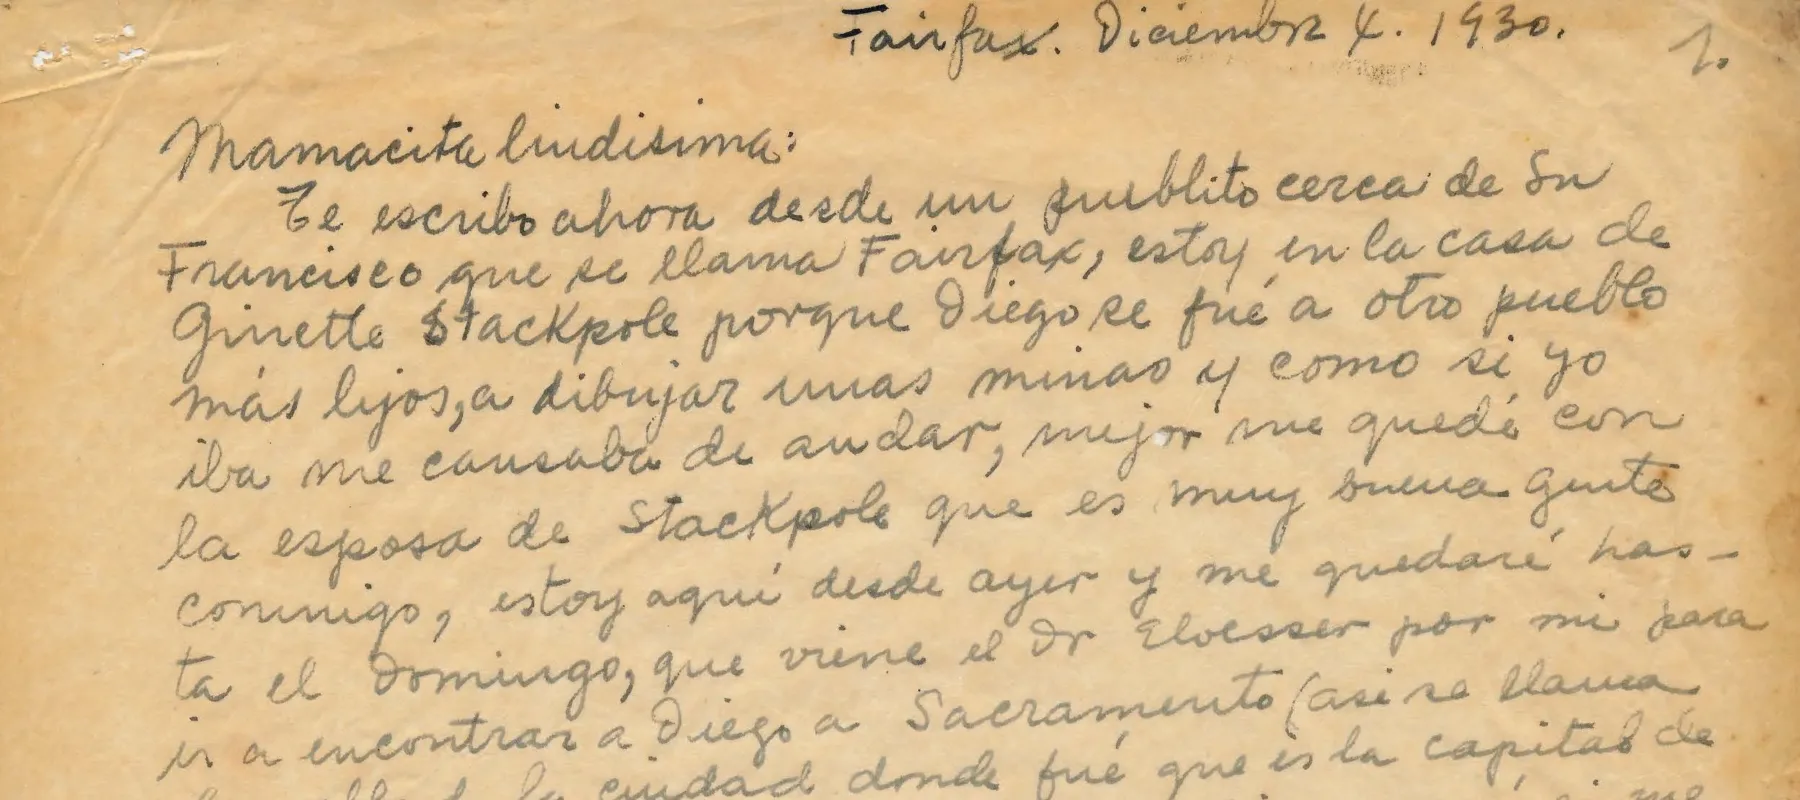 Fairfax. Diciembre 4. 1930.
1.
Mamacita lindisima:
Te escribo ahora desde un pueblito cerca de Sn
Francisco que se llama Fairfax, estoy en la casa de
Ginette Stackpole porque Diego se fué a otro pueblo
más lejos, a dibujar unas minas y como si yo
iba me cansaba de andar, mejor me quedé con
la esposa de Stackpole que es muy buena gente
conmigo, estoy aquí desde ayer y me quedaré has-
ta el Domingo, que viene el Dr Eloesser por mi para
ir a encontrar a Diego a Sacramento (asi se llama
la ciudad donde fué que es la capital de
me